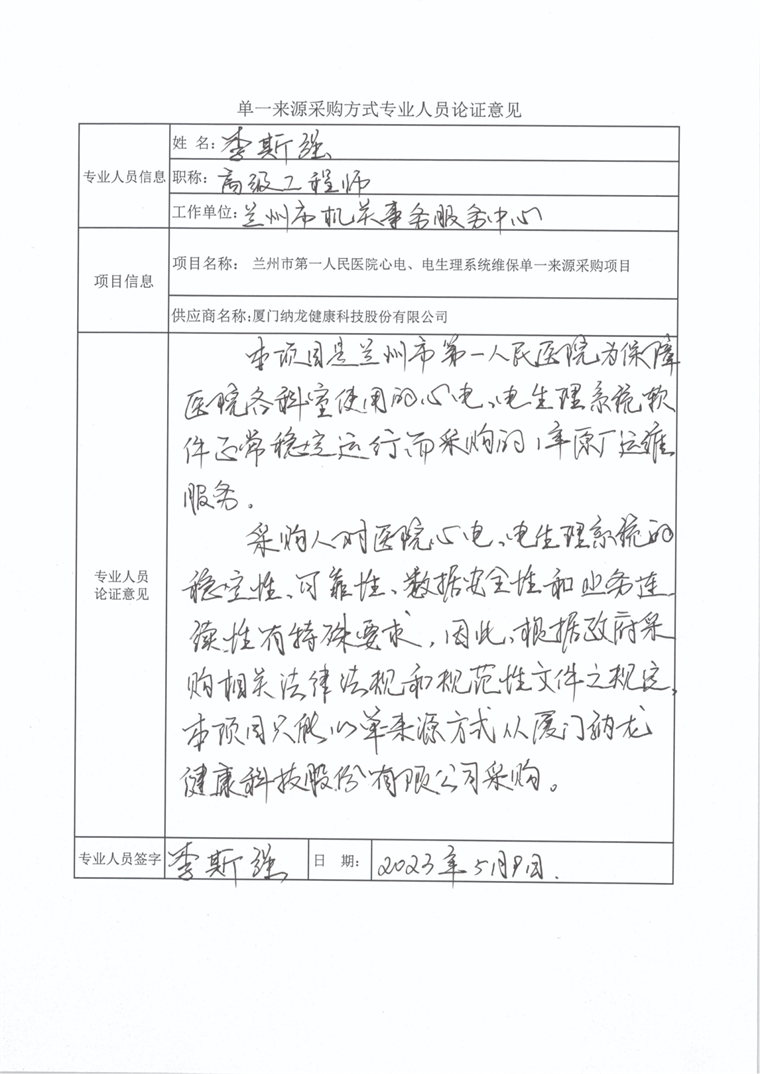 单一来源采购方式专业人员论证意见
专业人员信息
姓 名：李斯强
职称：高级工程师
工作单位：兰州市机关事务服务中心
项目信息
项目名称： 兰州市第一人民医院心电、电生理系统维保单一来源采购项目
供应商名称：厦门纳龙健康科技股份有限公司
专业人员
论证意见
本项目是兰州市第一人民医院为保障
医院各科室使用的心电、电生理系统软
件正常稳定运行,而采购的1年原厂运维
服务。
采购人对医院心电、电生理系统的
稳定性、可靠性、数据安全性和业务连
续性有特殊要求，因此，根据政府采
购相关法律法规和规范性文件之规定，
本项目只能以单一来源方式从厦门纳龙
健康科技股份有限公司采购。
专业人员签字 李斯强 日 期： 2023年5月9日.